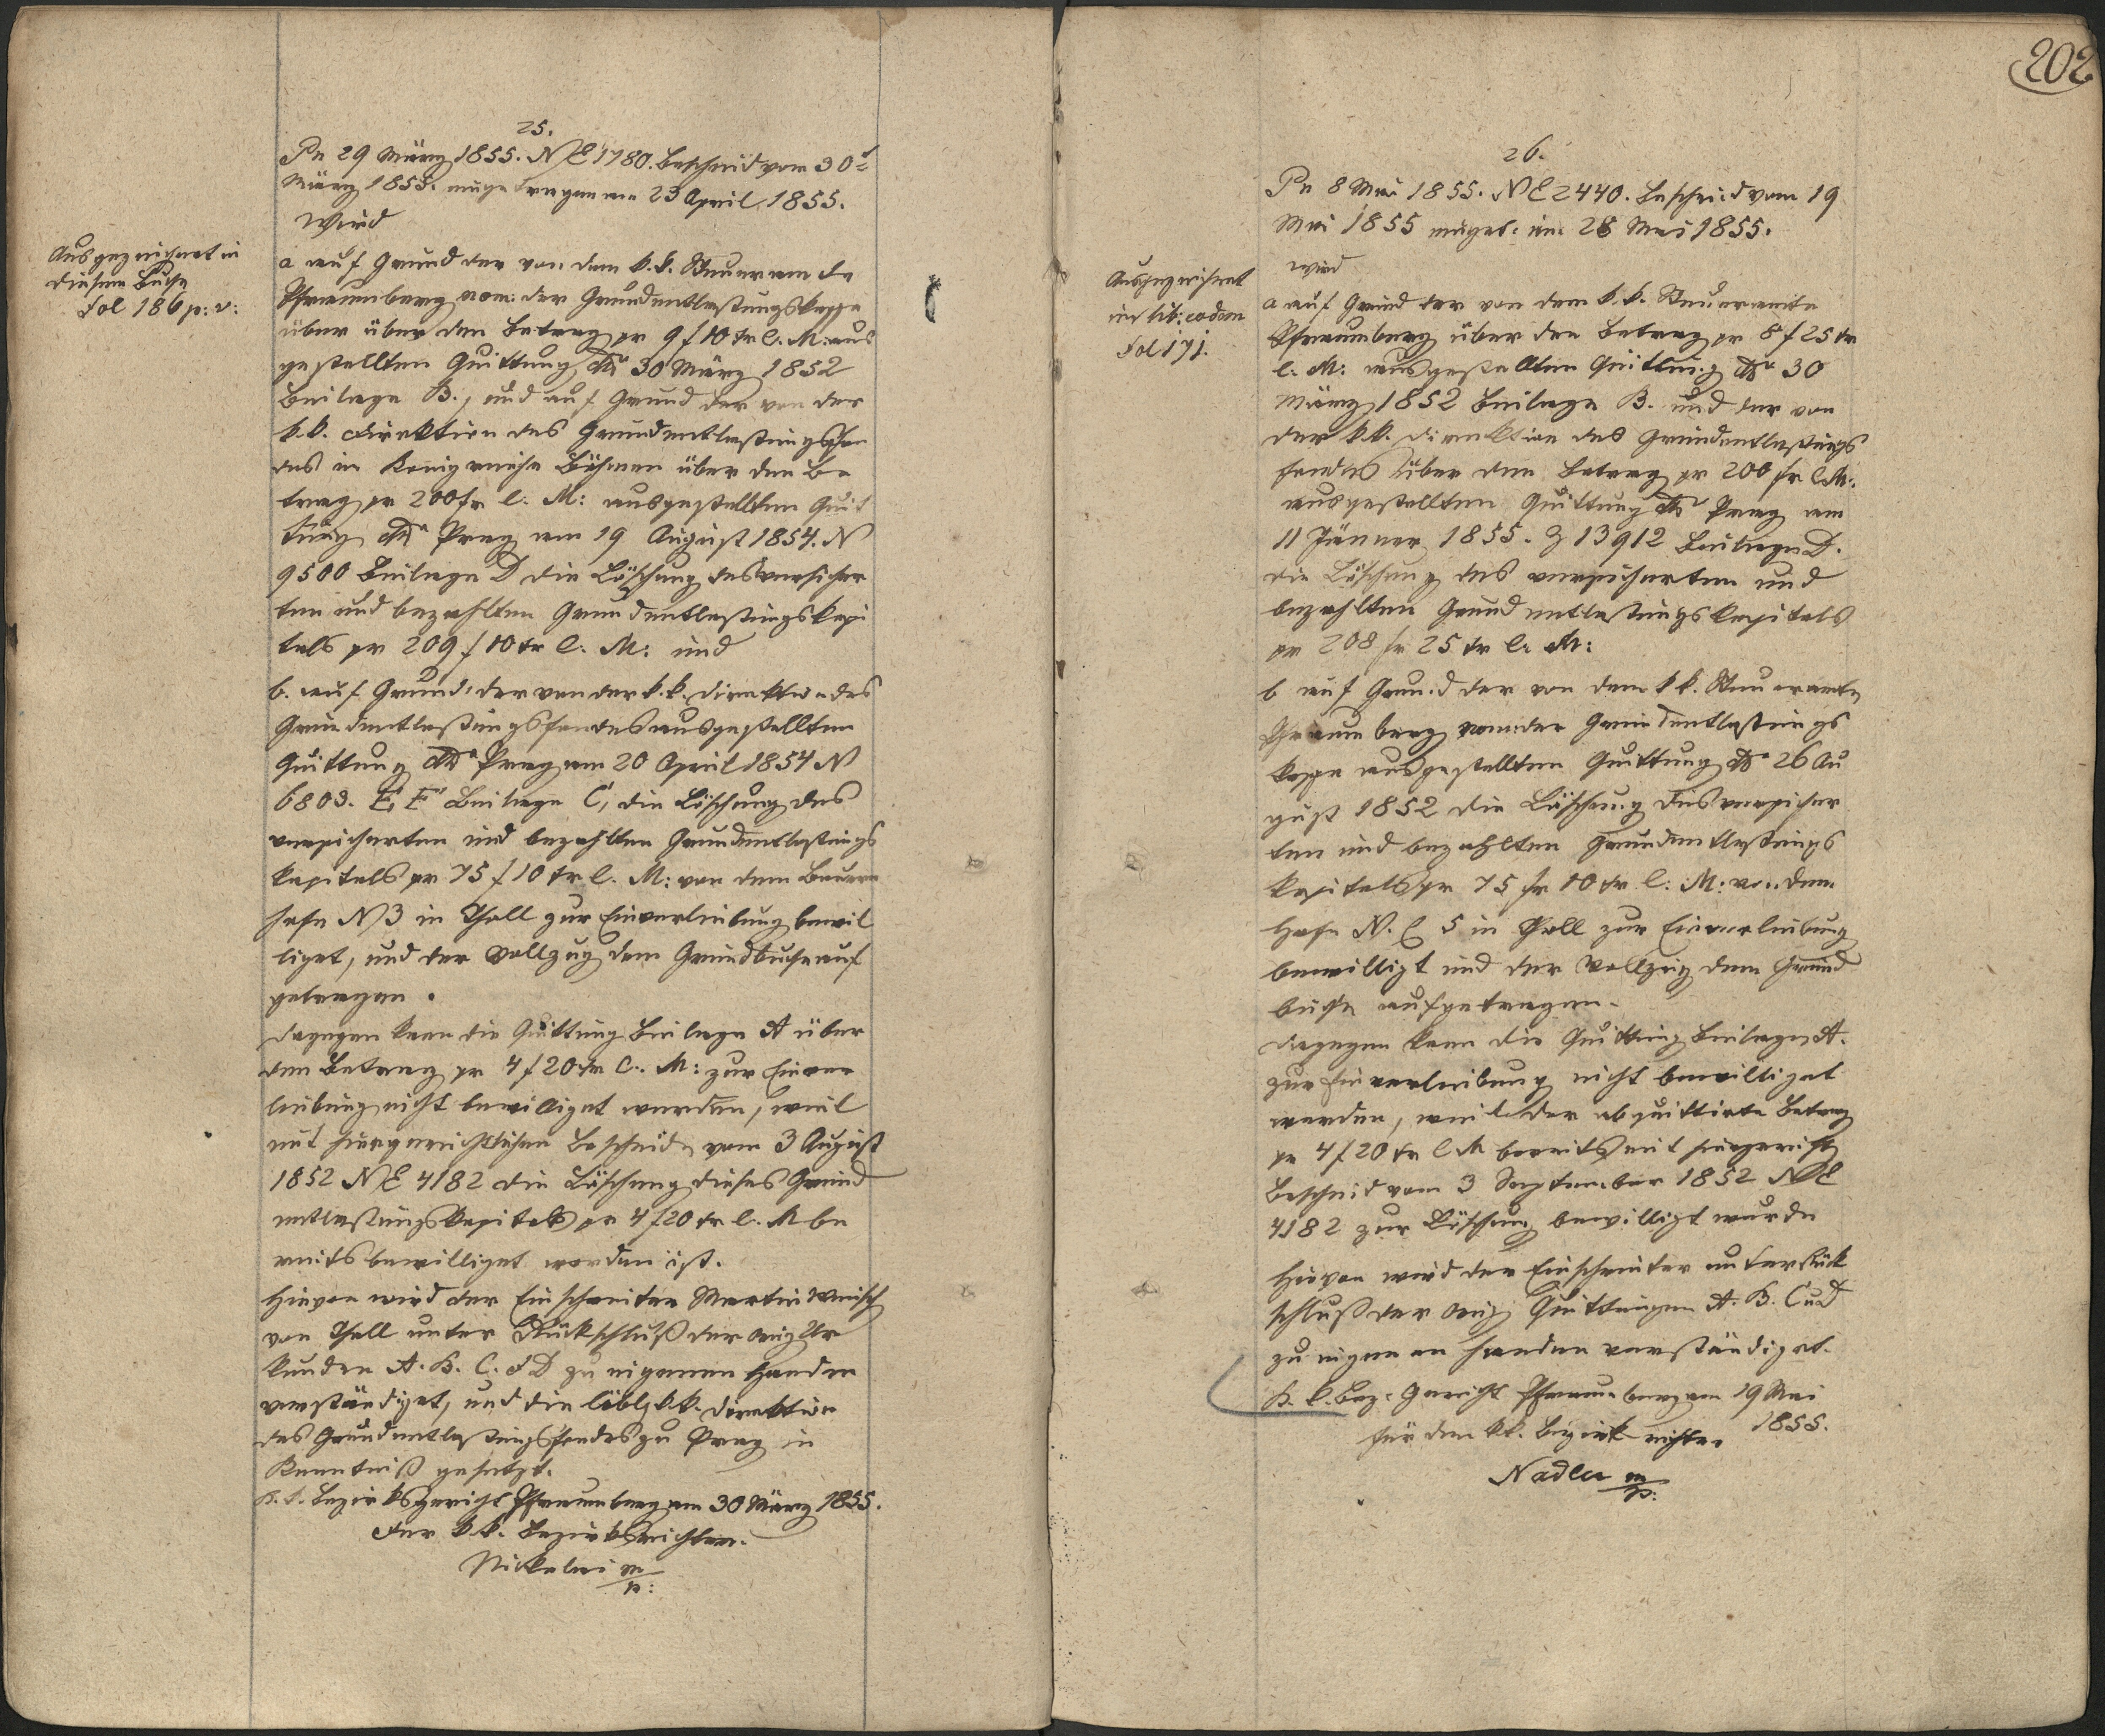 25.
Pn 29 März 1855. NE 1780. Bescheid vom 30t
März 1855. eingetragen am 23 April 1855.
Wird
a auf Grund der von dem k.k. Steueramte
Pfraumberg nom: der Grundentlastungskasse
über über den Betrag pr 9 f 10 kr C. M: aus
gestellten Quittung ddo 30 März 1852
Beilage B., und auf Grund der von der
k.k. Direktion des Grundentlastungsfon
des im Königreiche Böhmen über den Be
trag pr 200 fr C. M: ausgestellten Quit
tung ddo Prag am 19 August 1854. N
9500 Beilage D die Löschung des versicher
ten und bezahlten Grundentlastungskapi
tals pr 209 f 10 kr C. M: und
b. auf Grund der von der k.k. Direktion des
Grundentlastungsfondes ausgestellten
Quittung ddo Prag am 20 April 1854 N
6803. Beilage C, die Löschung des
versicherten und bezahlten Grundentlastungs
kapitals pr 75 f 10 kr C. M: von dem Bauern
hofe N 3 in Thall zur Einverleibung bewil
liget, und der Vollzug dem Grundbuche auf
getragen.
Dagegen kann die Quittung Beilage A über
den Betrag pr 4 f 20 kr C. M: zur Einver
leibung nicht bewilliget werden, weil
mit hiergerichtlichem Bescheide vom 3 August
1852 NE 4182 die Löschung dieses Grund
entlastungskapitals pr 4 f 20 kr C. M be
reits bewilliget worden ist.
Hievon wird der Einschreiter Martin
von Thall unter Rückschluß der orig Ur
kunden A. B. C. & D zu eigenen Handen
verständiget, und die löbl. k.k. Direktion
des Grundentlastungsfondes zu Prag in
Kenntniß gesetzt.
K. k. Bezirksgericht Pfraumberg am 30 März 1855.
Der k.k. Bezirksrichter.
m/p:
Ausgezeichnet in
diesem Buche
Fol 186 p: v:
202
26.
Pn 8 Mai 1855. NE 2440. Bescheid vom 19
Mai 1855 einget: am 28 Mai 1855.
wird
a auf Grund der von dem k.k. Steueramte
Pfraumberg über den Betrag pr 8 f 25 kr
C. M: ausgestellten Quittung ddo 30
März 1852 Beilage B. und der von
der k.k. Direktion des Grundentlastungs
fondes über den Betrag pr 200 fr C.M:
ausgestellten Quittung ddo Prag am
11 Jänner 1855. Z 13912 Beilage D.
die Löschung des versicherten und
bezahlten Grundentlastungskapitals
pr 208 fr 25 kr C. M:
b auf Grund der von dem k k. Steueramte
Pfraumberg nom: der Grundentlastungs
kasse ausgestellten Quittung ddo 26 Au
gust 1852 die Löschung des versicher
ten und bezahlten Grundentlastungs
kapitals pr 75 fr 10 kr C. M: von dem
Hofe N. C 5 in Thall zur Einverleibung
bewilligt und der Vollzug dem Grund
buche aufgetragen.
Dagegen kann die Quittung Beilage A.
zur Einverleibung nicht bewilliget
werden, weil der abquittirte Betrag
pr 4 f 20 kr C M bereits mit hiergericht
Bescheid vom 3 September 1852 NE
4182 zur Löschung bewilligt wurde
Hievon wird der Einschreiter unter Rück
schluß der orig Quittungen A. B. C u D
zu eigenen Handen verständiget.
K. k. Bez. Gericht Pfraumberg am 19 Mai
1855.
Für den k.k. Bezirksrichter
Nadler m/p:
Ausgezeichnet
in lib: eodem
Fol 171.